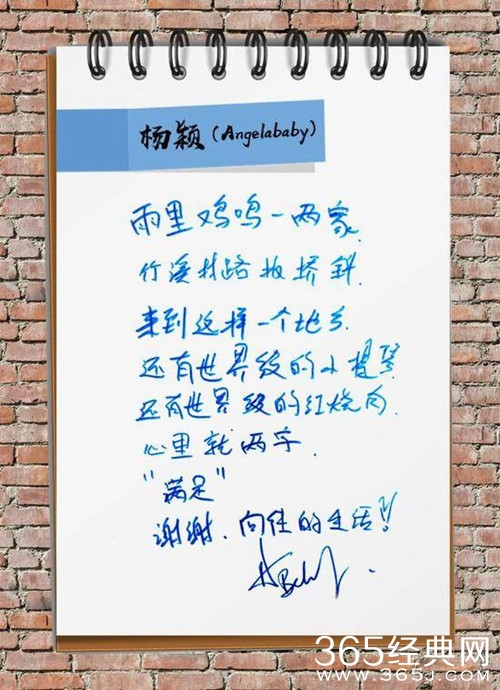 杨颖(Angelababy)
雨里鸡鸣一两家.
竹溪村路板桥斜.
来到这样一个地方.
还有世界级的小提琴
还有世界级的红烧肉.
心里就两字.
"满足"
谢谢.向往的生活!!
365经典网
www.365J.com